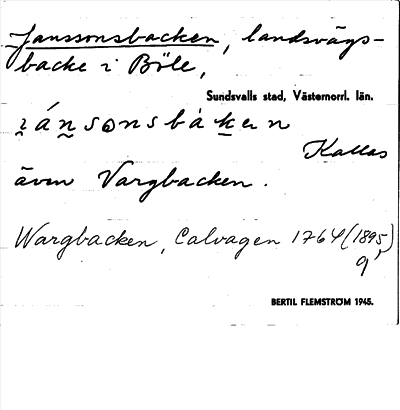 Janssonsbacken, landsvägs-
backe i Böle,
Sundsvalls stad, Västernorrl. län.
i̯ánsonsbàken
Kallas
även Vargbacken.
Wargbacken, Calvagen 1764 (1895)
9,
BERTIL FLEMSTRÖM 1945.